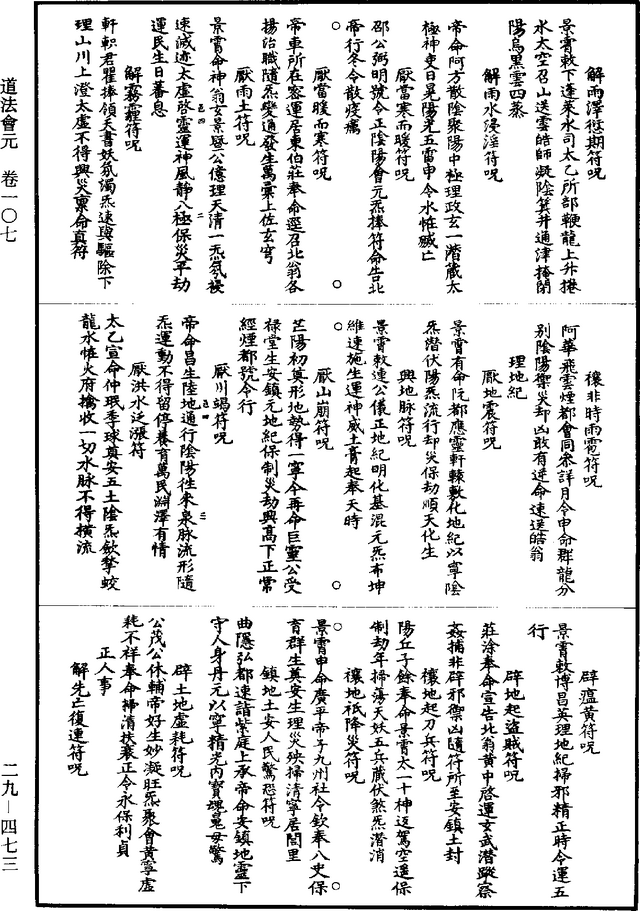 道法會元　卷一〇七
解雨澤愆期符呪
景霄敕下蓬萊水司太乙所部鞭龍上升捲
水太空召山送雲皓師凝陰箕井通津掩閉
陽烏黑雲四蒸
解雨水浸淫符呪
帝命阿方散陰聚陽中極理政玄一潛藏太
極神吏日晃陽光五雷申令水惟臧亡
厭當寒而暖符呪
邵公弼明號令正陰陽會元炁捧符命告北
帝行冬令散疫癘
厭當暖而寒符呪
帝車所在密運居東伯莊奉命遥召北翁各
揚治職隨炁變通發生萬彙上佐玄穹
厭雨土符呪
景霄命神翁玄景暨公億理天清一炁氛祲
速滅迹太虛啓靈運神風靜八極保災平劫
運民生日蕃息
解霧霾符呪
軒轵君瞿捧領天書妖氛濁炁速與驅除下
理山川上澄太虛不得興災稟命真符
禳非時雨雹符呪
阿華飛雲煙都會同叅詳月令申命群龍分
别陰陽禦災却凶敢有逆命速送皓翁
理地紀
厭地震符呪
景霄有命阮都應靈軒轅敷化地紀以寧陰
炁潛伏陽炁流行却災保劫順天化生
興地脉符呪
景霄敕速公儀正地紀明化基混元炁布坤
維速施生運神威土膏起奉天時
厭山崩符呪
芒陽初奠形地勢得一寧今再命巨靈公受
禄堂生安鎮元地紀保制災劫興高下正常
經煙都號令行
厭川竭符呪
帝命昌生陸地通行陰陽往來泉脉流形隨
炁運動不得留停養育萬民淵澤有情
厭洪水泛漲符
太乙宣命仲珉季球奠安五土陰炁歛挈蛟
龍水惟火府擒收一切水脉不得橫流
辟瘟黄符呪
景霄敕博昌英理地紀掃邪精正時令運五
行
辟地起盜賊符呪
莊涂奉命宣告北翁黄中啓運玄武潛蹤察
姦捕非辟邪禦凶隨符所至安鎮土封
禳地起刀兵符呪
陽丘子餘奉命景霄太一十神返駕空遥保
制劫年掃蕩天妖五兵藏伏煞炁潛消
禳地祇降災符呪
景霄申命廣平帝子九州社令欽奉八史保
育群生奠安生理災殃掃清寧居閭里
鎮地土安人民驚恐符呪
曲隱弘都速詣紫庭上承帝命安鎮地靈下
守人身丹元以寧精光内寶魂魄毋驚
辟土地虛耗符呪
公茂公休輔帝好生妙凝旺炁聚會黄寧虛
耗不祥奉命掃清扶衰正令永保利貞
正人事
解先亡復連符呪
二九—四七三